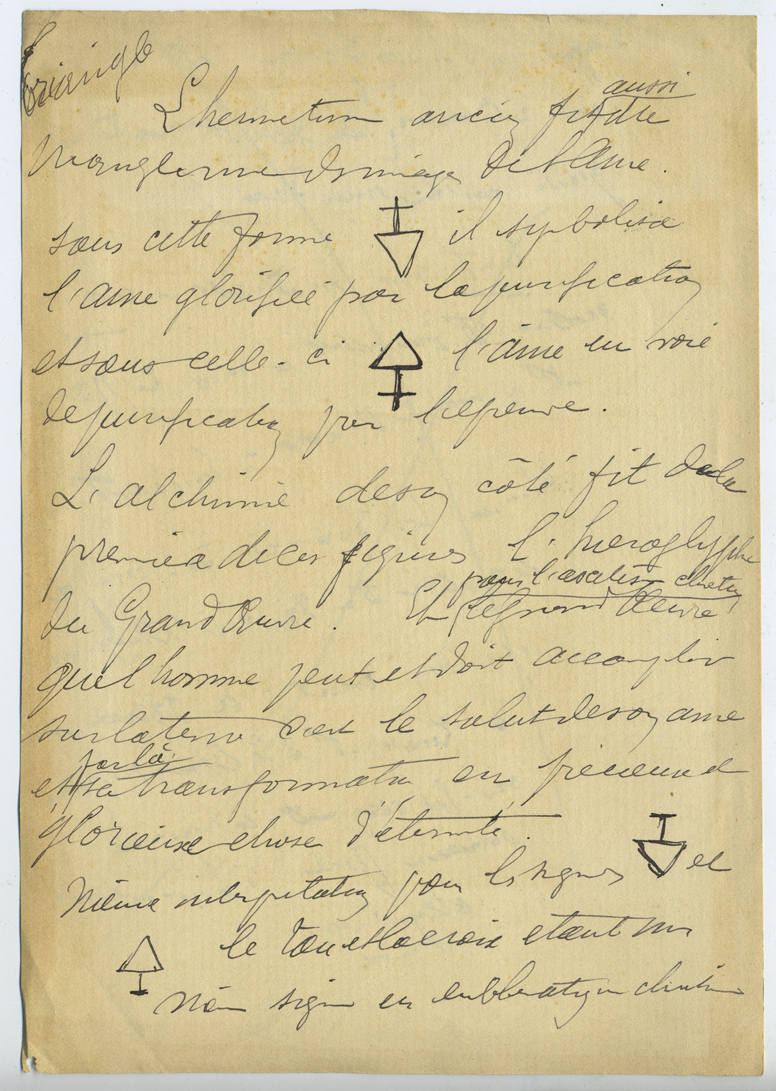 triangle
aussi
L'hermetisme ancien fit du
triangle une image de l'Ame.
sous cette forme il symbolisa
l'ame glorifiée par la purification
et sous celle-ci l'âme en voie
de purification par l'épreuve.
L'alchimie de son côté fit de la
première de ces figures l'hieroglyphe
pour l'ascétisme chretien
du Grand Œuvre. Et le grand Œuvre
que l'homme peut et doit accomplir
sur la terre c'est le salut de son ame
par là
et sa transformation en precieuse
glorieuse chose d'éternité.
Même interpretation pour les signes et
le Tau et la croix etant un
même signe en emblematique chretienne